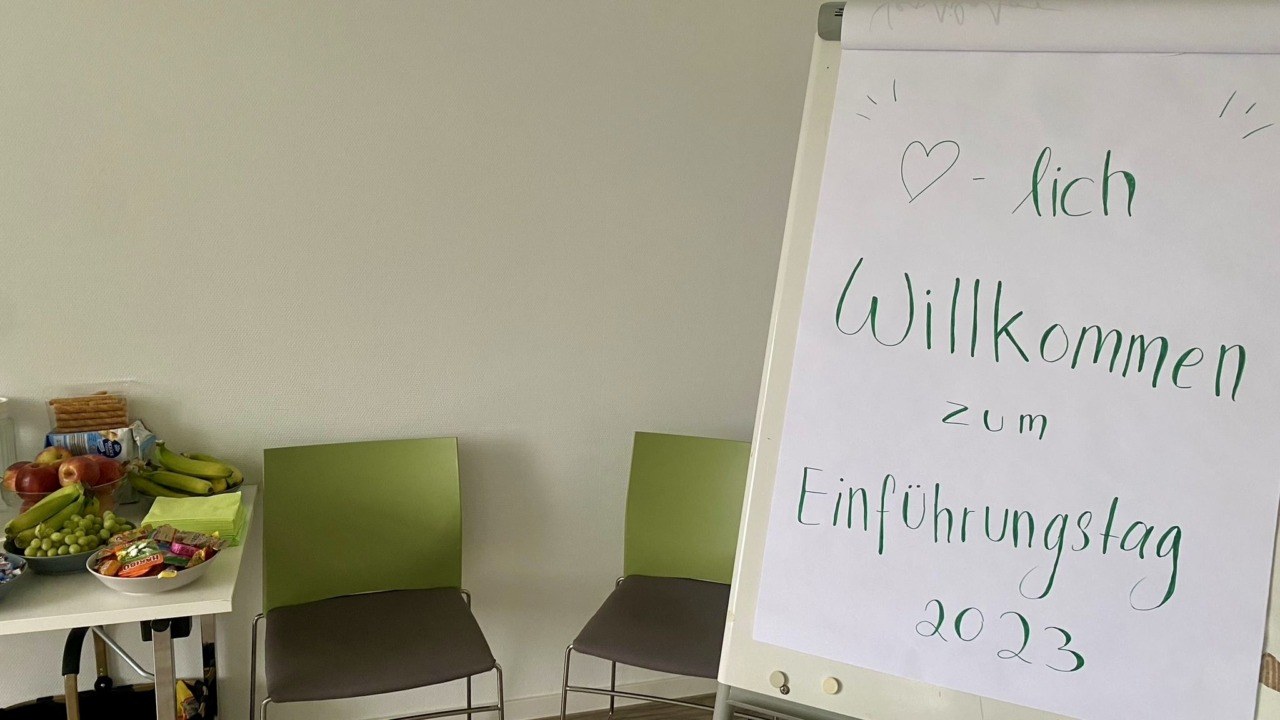 ♡-lich
Willkommen
zum
Einführungstag
2023
HARIBO